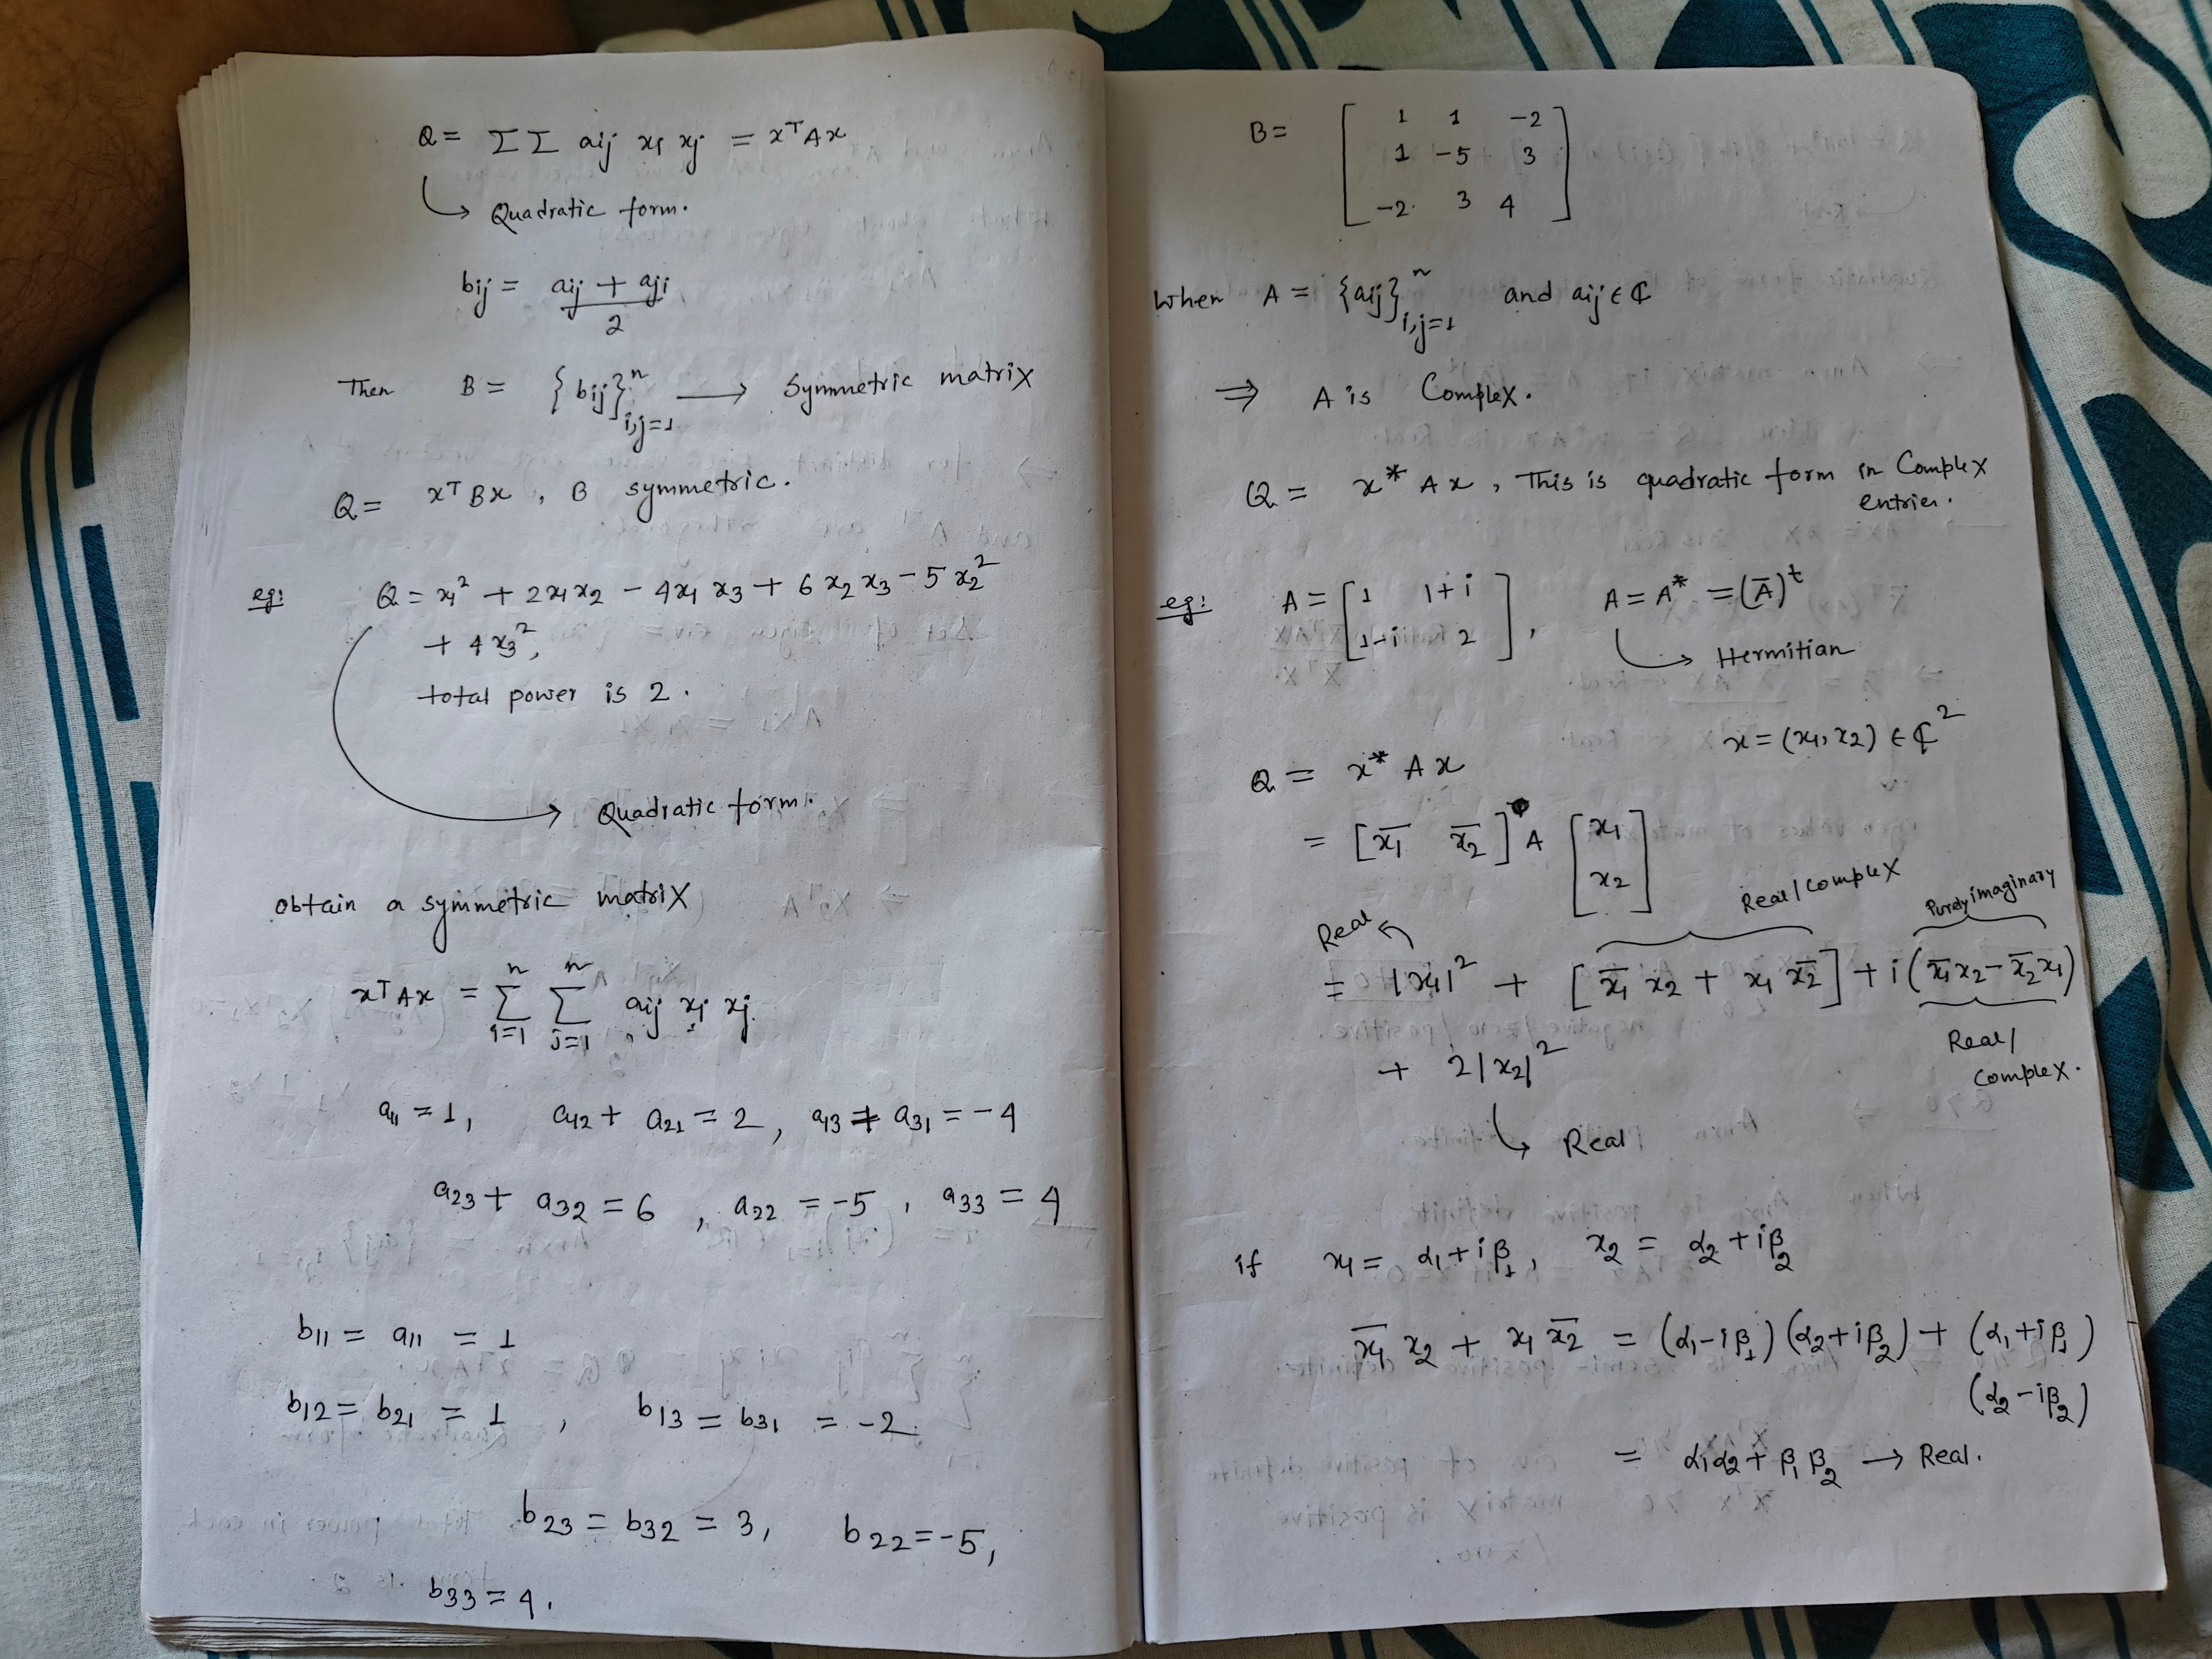 Q = ΣΣ aij xi xj = xᵀAx
↳ Quadratic form.
bij = (aij + aji)/2
Then B = {bij}ⁿi,j=1 → Symmetric matrix
Q = xᵀBx, B symmetric.
eg: Q = x1² + 2x1x2 - 4x1x3 + 6x2x3 - 5x2²
+ 4x3²,
total power is 2.
→ Quadratic form.
obtain a symmetric matrix
xᵀAx = Σⁿi=1 Σⁿj=1 aij xi xj.
a11 = 1, a12 + a21 = 2, a13 + a31 = -4
a23 + a32 = 6, a22 = -5, a33 = 4
b11 = a11 = 1
b12 = b21 = 1, b13 = b31 = -2.
b23 = b32 = 3, b22 = -5,
b33 = 4.
B = [ 1 1 -2
1 -5 3
-2 3 4 ]
When A = {aij}ⁿi,j=1 and aij ∈ ℂ
⇒ A is Complex.
Q = x* Ax, This is quadratic form in Complex
entries.
eg: A = [ 1 1+i
1-i 2 ], A = A* = (A̅)ᵗ
↳ Hermitian
x = (x1, x2) ∈ ℂ²
Q = x* A x
= [x̅1 x̅2] A [ x1
x2 ]
Real Real/Complex Purely imaginary
= |x1|² + [x̅1 x2 + x1 x̅2] + i(x̅1x2 - x̅2x1)
Real/
Complex.
+ 2|x2|²
↳ Real
if x1 = α1 + iβ1, x2 = α2 + iβ2
x̅1 x2 + x1 x̅2 = (α1 - iβ1)(α2 + iβ2) + (α1 + iβ1)
(α2 - iβ2)
= α1α2 + β1β2 → Real.